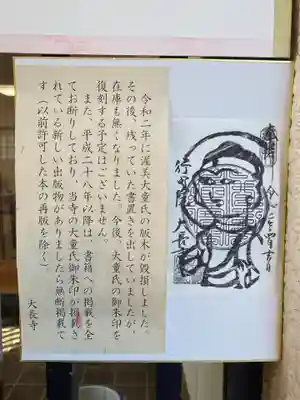 令和二年に渥美大童氏の版木が毀損しました。
その後、残っていた書置きを出していましたが、
在庫も無くなりました。今後、大童氏の御朱印を
復刻する予定はございません。
また、平成二十八年以降は、書籍への掲載を全
てお断りしており、当寺の大童氏御朱印が掲載さ
れている新しい出版物がありましたら無断掲載で
す（以前許可した本の再版を除く）。
大長寺
奉拝
行
大長寺